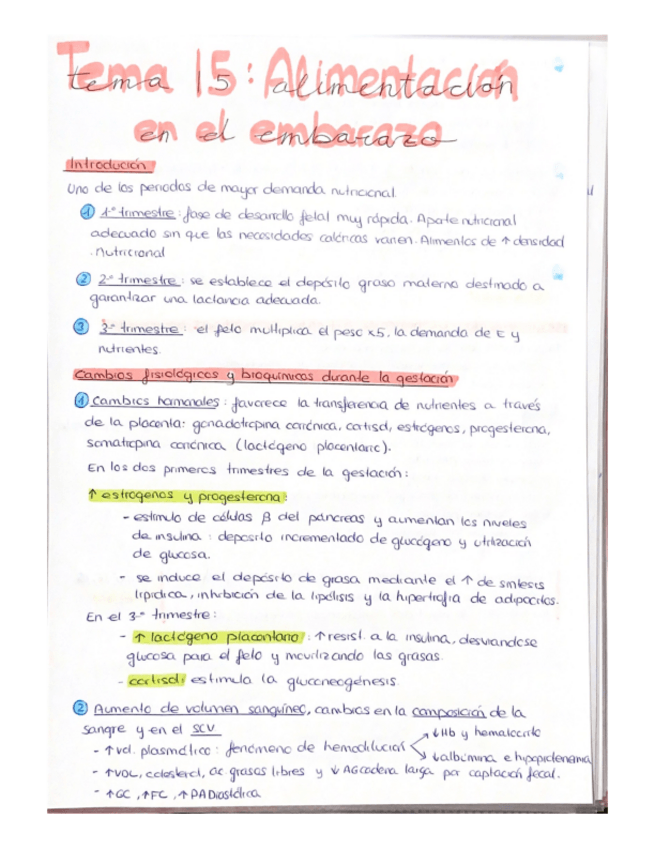 Tema 15: Alimentación
en el embarazo
Introducción
Uno de los periodos de mayor demanda nutricional.
1 1º trimestre: fase de desarrollo fetal muy rápida. Aporte nutricional
adecuado sin que las necesidades calóricas varíen. Alimentos de ↑ densidad
nutricional
2 2º trimestre: se establece el depósito graso materno destinado a
garantizar una lactancia adecuada.
3 3º trimestre: el feto multiplica el peso x5, la demanda de E y
nutrientes.
Cambios fisiológicos y bioquímicos durante la gestación
1 Cambios hormonales: favorece la transferencia de nutrientes a través
de la placenta: gonadotropina coriónica, cortisol, estrógenos, progesterona,
somatropina coriónica (lactógeno placentario).
En los dos primeros trimestres de la gestación:
↑ estrogenos y progesterona:
- estimulo de células β del páncreas y aumentan los niveles
de insulina: deposito incrementado de glucógeno y utilización
de glucosa.
- se induce el depósito de grasa mediante el ↑ de sintesis
lipídica, inhibición de la lipólisis y la hipertrofia de adipocitos.
En el 3º trimestre:
- ↑ lactógeno placentario: ↑ resist. a la insulina, desviandose
glucosa para el feto y movilizando las grasas.
- cortisol: estimula la gluconeogénesis.
2 Aumento de volumen sanguíneo, cambios en la composición de la
sangre y en el SCV
- ↑ vol. plasmático: fenómeno de hemodilución ↓Hb y hematocrito
↓albúmina e hipoproteinemia
- ↑VLDL, colesterol, ác. grasos libres y ↓ AG cadena larga por captación fecal.
- ↑GC, ↑FC, ↑PA Diastólica